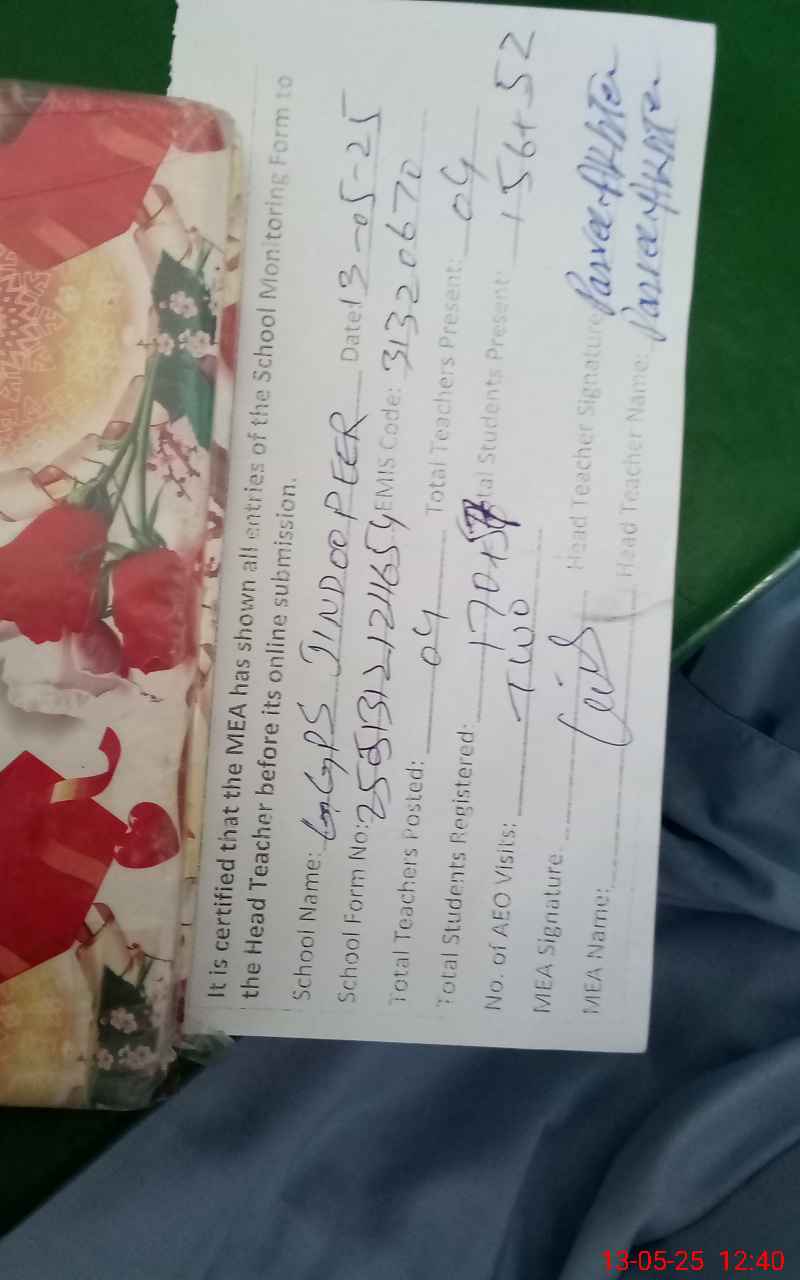 It is certified that the MEA has shown all entries of the School Monitoring Form to
the Head Teacher before its online submission.
School Name: GGPS JINDOO PEER Date: 13-05-25
School Form No: EMIS Code: 31320670
Total Teachers Posted: 04 Total Teachers Present: 04
Total Students Registered: 170+57 Total Students Present: 156+52
No. of AEO Visits: TWO
MEA Signature: Head Teacher Signature:
MEA Name: Head Teacher Name:
13-05-25 12:40